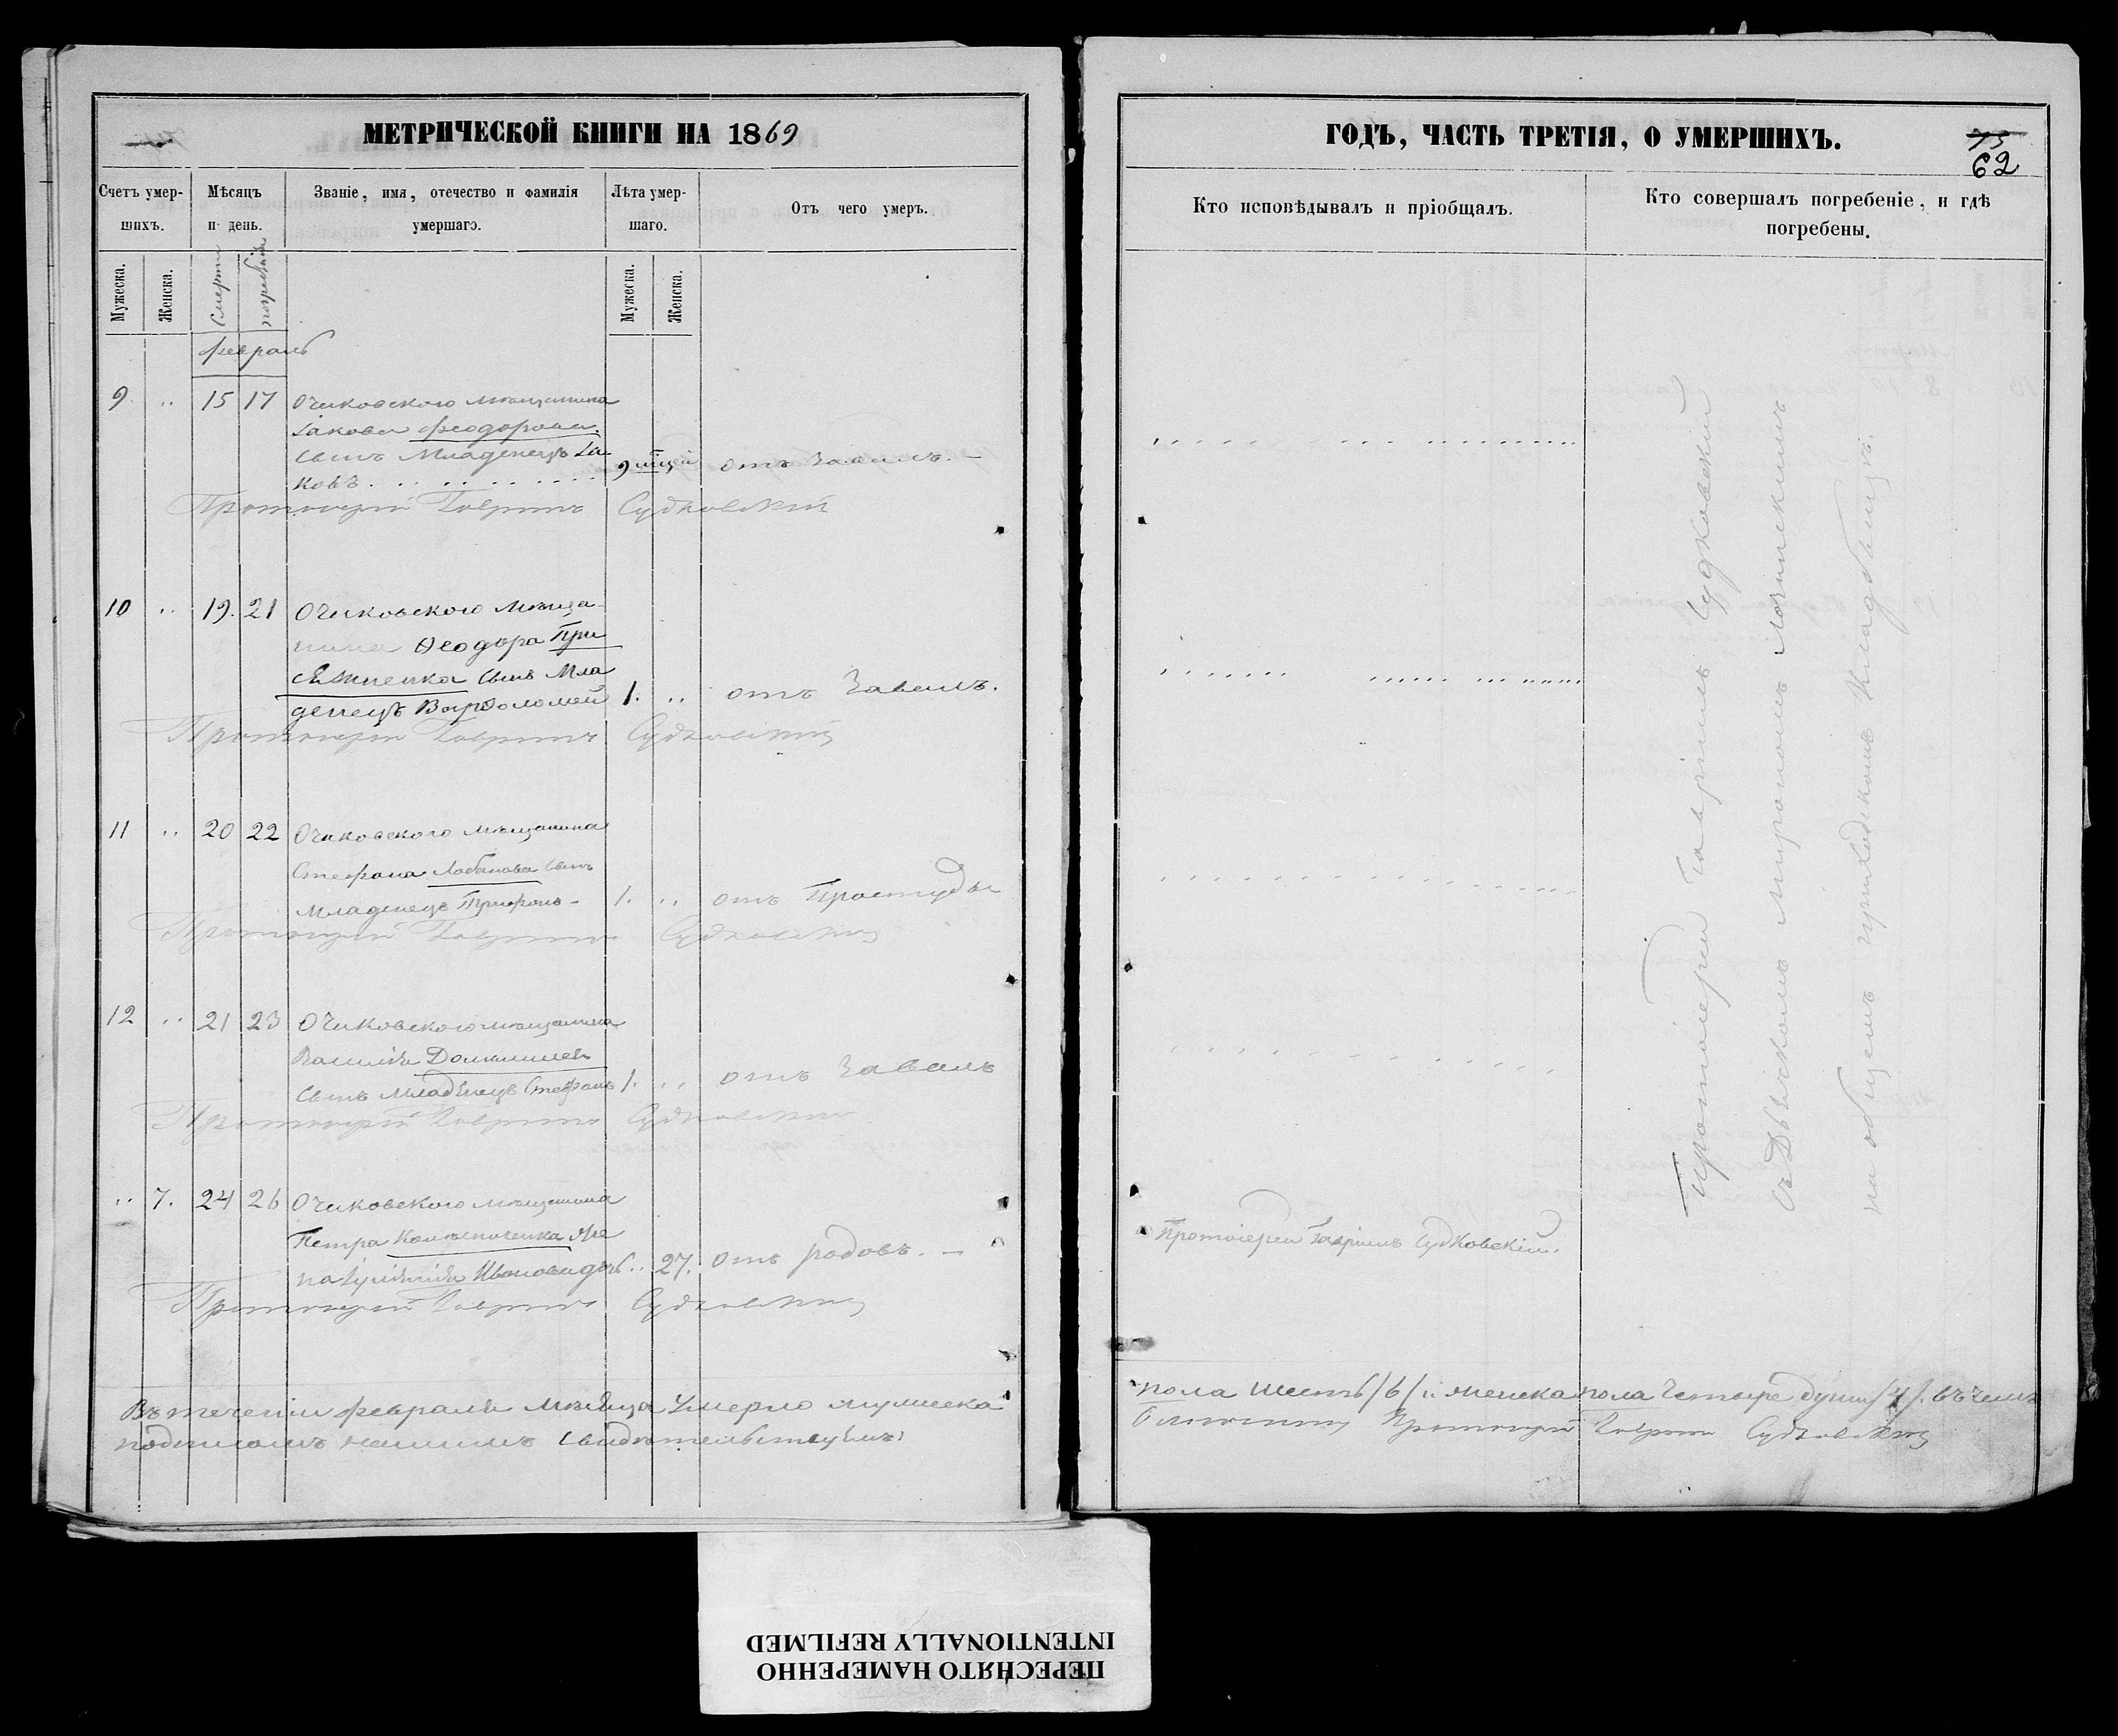 МЕТРИЧЕСКОЙ КНИГИ НА 1869
Счетъ умер-
шихъ.
Мѣсяцъ
и день.
Званіе, имя, отечество и фамилія
умершаго.
Лѣта умер-
шаго.
Отъ чего умеръ.
Мужеска.
Женска.
Смерти
погребенія
Мужеска.
Женска.
Февраль
9 .. 15 17 Очаковского мѣщанина
Іакова Феодорова
сынъ Младенецъ Іа-
ковъ . . . . . . . . 9 мцей отъ Завалъ. —
Протоіерей Гавріилъ Судковскій
10 .. 19. 21 Очаковского мѣща-
нина Ѳеодора При
сяжненка сынъ Мла
денецъ Варѳоломей 1. .. отъ Завалъ.
Протоіерей Гавріилъ Судковскій
11 .. 20 22 Очаковского мѣщанина
Стефана Лобанова сынъ
младенецъ Трифонъ - 1. .. отъ Простуды
Протоіерей Гавріилъ Судковскій
12 .. 21 23 Очаковского мѣщанина
Василія
сынъ младенецъ Стефанъ 1. .. отъ Завалъ
Протоіерей Гавріилъ Судковскій
.. 7. 24 26 Очаковского мѣщанина
Петра же
на Іуліанія Иванова дочь .. 27. отъ родовъ. —
Протоіерей Гавріилъ Судковскій
Въ теченіи февраля мѣсяца умерло мужеска
подписомъ нашимъ свидѣтельствуемъ:
ГОДЪ, ЧАСТЬ ТРЕТІЯ, О УМЕРШИХЪ.
75
62
Кто исповѣдывалъ и пріобщалъ.
Кто совершалъ погребеніе, и гдѣ
погребены.
Протоіерей Гавріилъ Судковскій
съ Дьячкомъ Мирономъ Лозинскимъ
на общемъ приходскомъ кладбищѣ.
Протоіерей Гавріилъ Судковскій.
пола шесть /6/ и женска пола четыре души /4/. въ чемъ
Протоіерей Гавріилъ Судковскій
ПЕРЕСНЯТО НАМЕРЕННО
INTENTIONALLY REFILMED